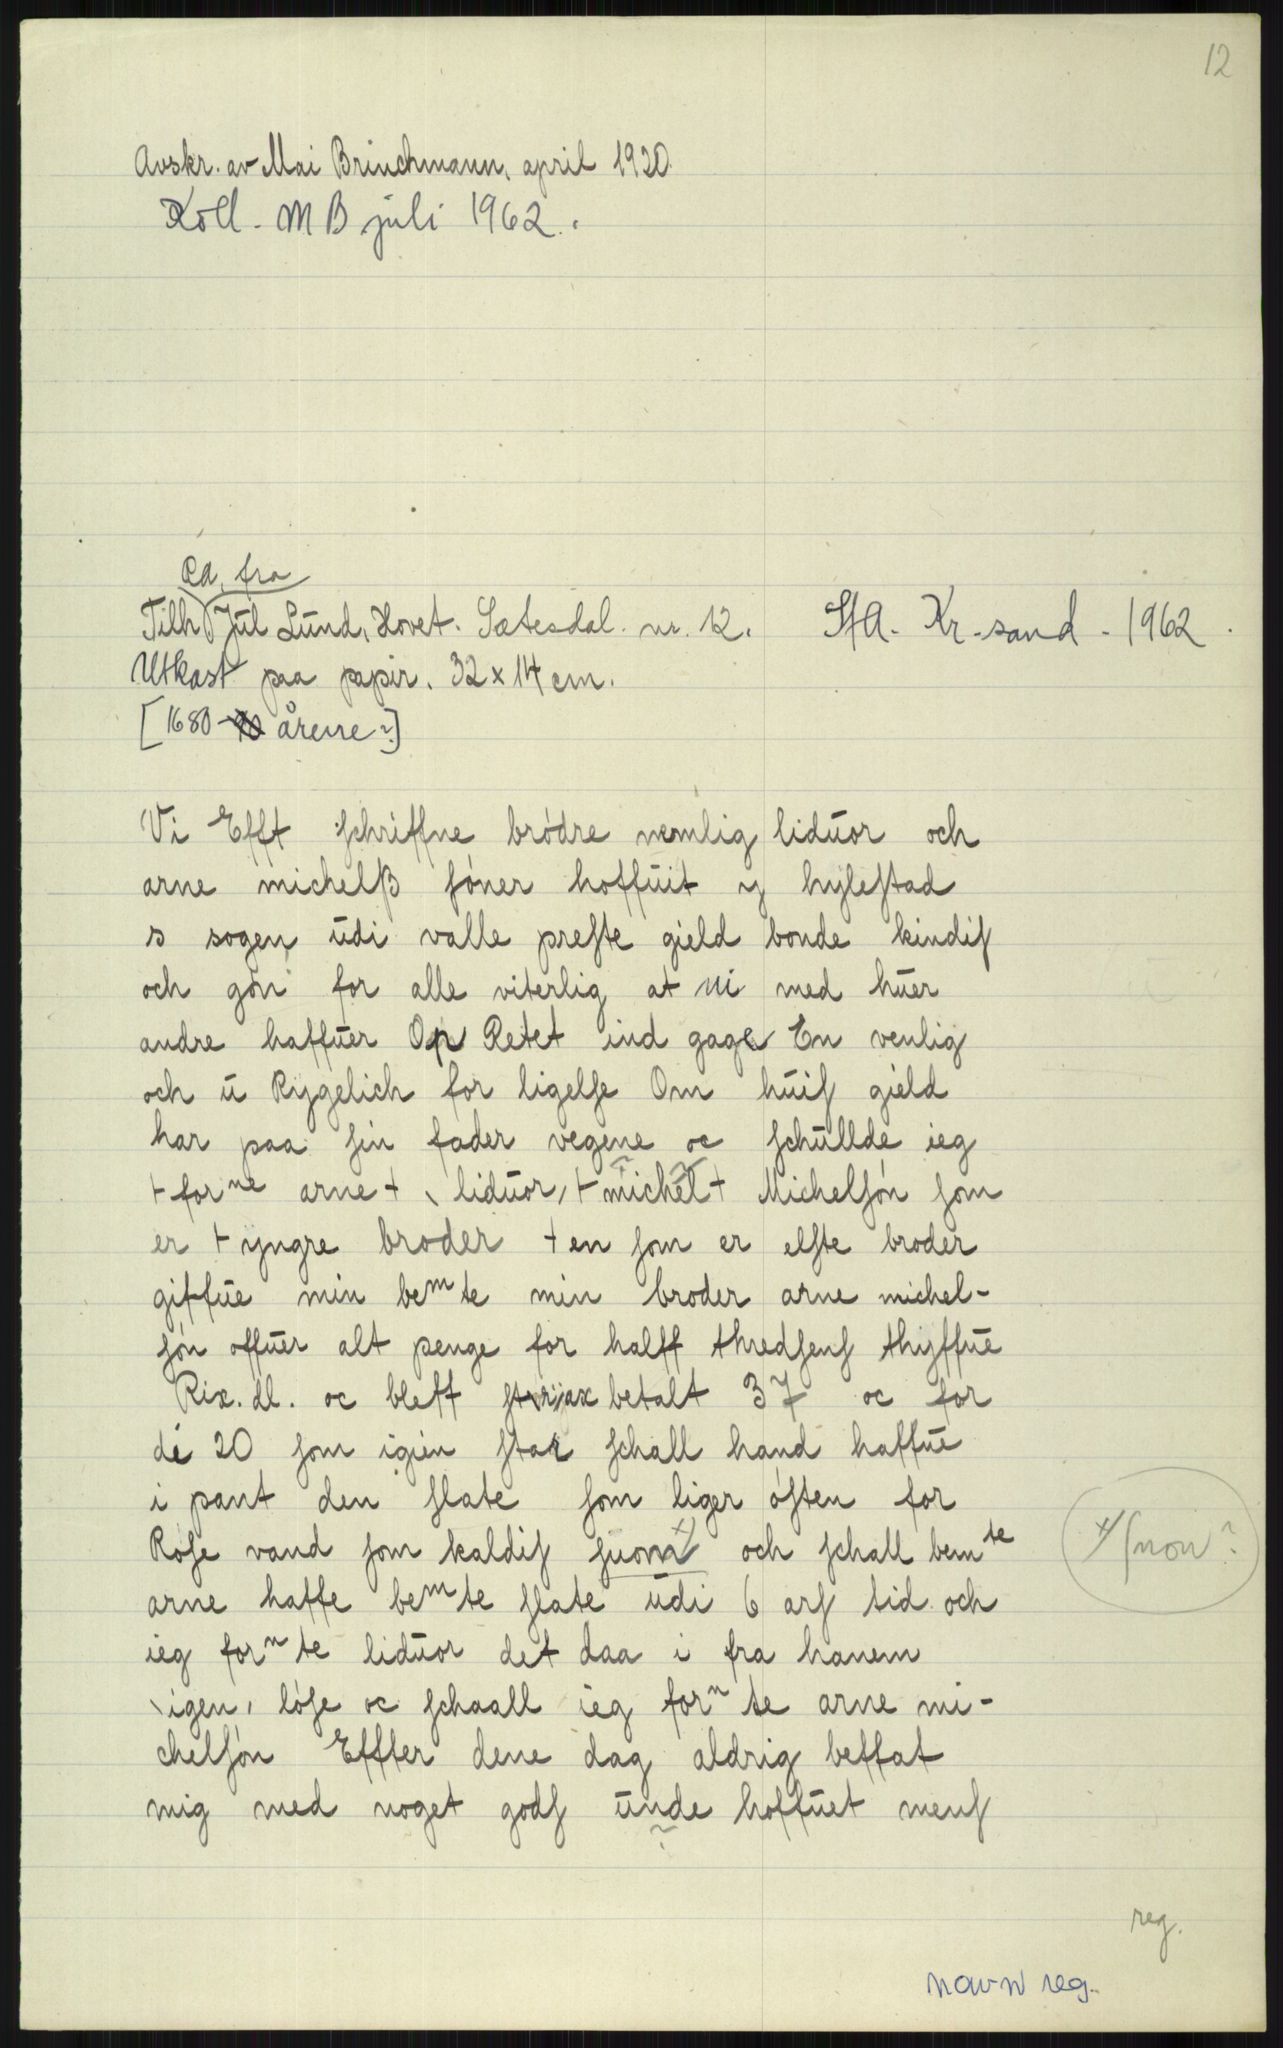 12
Avskr. av Mai Brinchmann, april 1930
Koll. MB juli 1962.
ca. fra
Tilh Jul Lund, Hovet. Sætesdal. nr. 12. StA. Kr-sand - 1962.
Utkast paa papir. 32 x 14 cm.
[1680 årene?]
Vi Efft schriffne brödre nemlig liduor och
arne michelß söner hoffuit y hylestad
s sogen udi valle preste gield bonde kindis
och gön for alle viterlig at vi med huer
andre haffuer Op Retet ind gage En venlig
och u Rygelich for ligelse Om huis gield
har paa sin fader vegene oc schullde ieg
+ for ne arne + \ liduor, + michel + Michelsön som
er + yngre broder + en som er elste broder
giffue min bem te min broder arne michel-
sön offuer alt penge for halff thredsens thyffue
Rix. dl. oc bleff strax betalt 37 oc for
de 20 som igien star schall hand haffue
i pant den slate som liger östen for
Rose vand som kaldis suom x/ och schall bem te
x/ snon?
arne haffe bem te slate udi 6 ars tid och
ieg forn te liduor det daa i fra hanem
\igen, löse oc schaall ieg forn te arne mi-
chelsön Effter dene dag aldrig beffat
mig med noget gods unde hoffuet mens
reg.
navn reg.